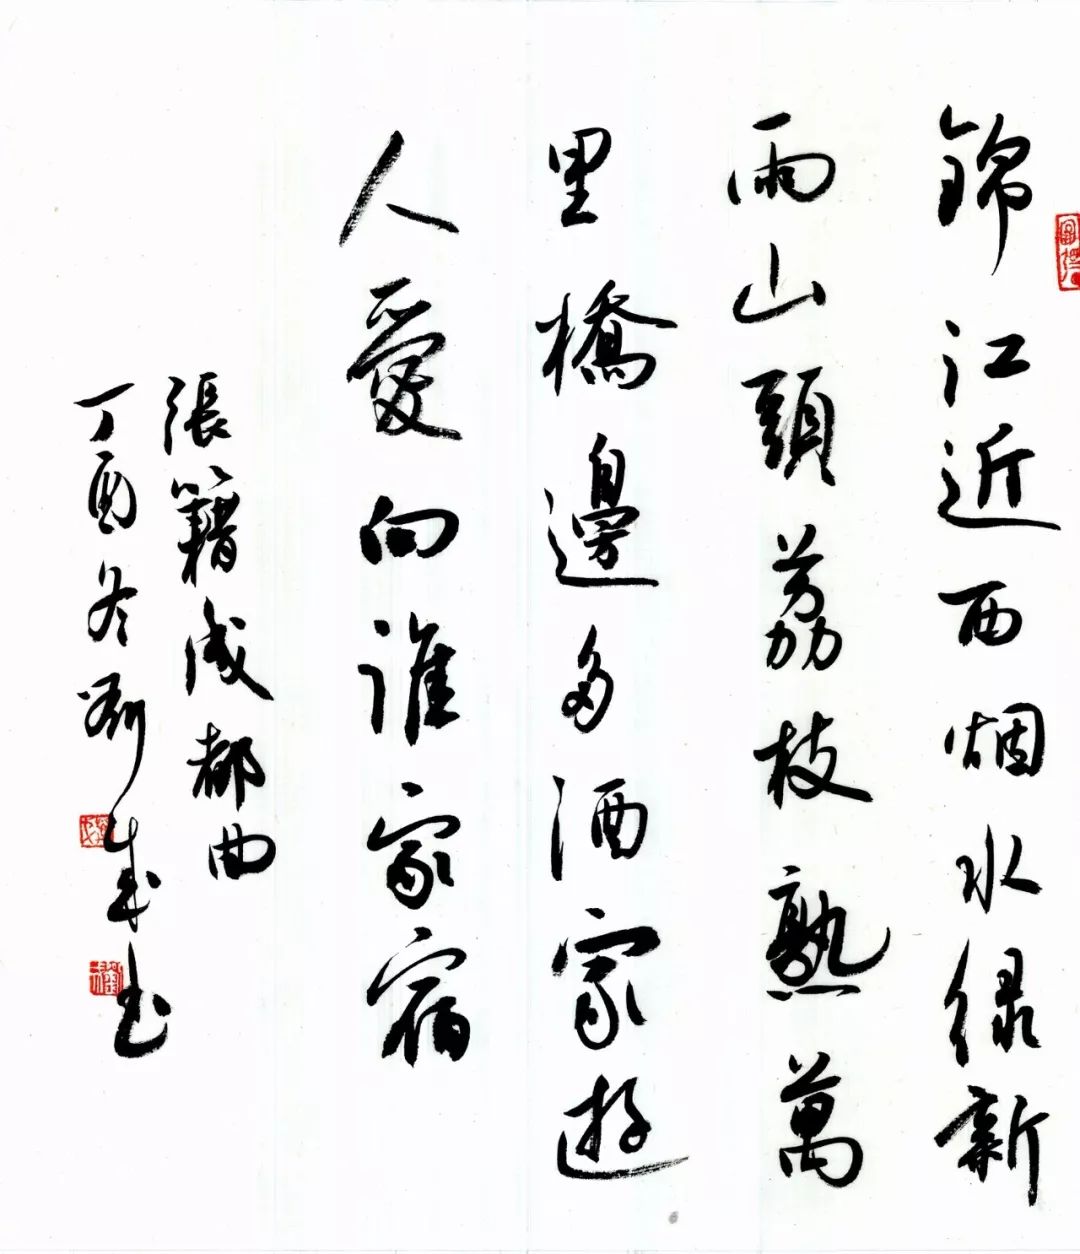 錦江近西烟水绿新
雨山頭荔枝熟萬
里橋邊多酒家遊
人愛向誰家宿
張籍成都曲
丁酉冬劉书